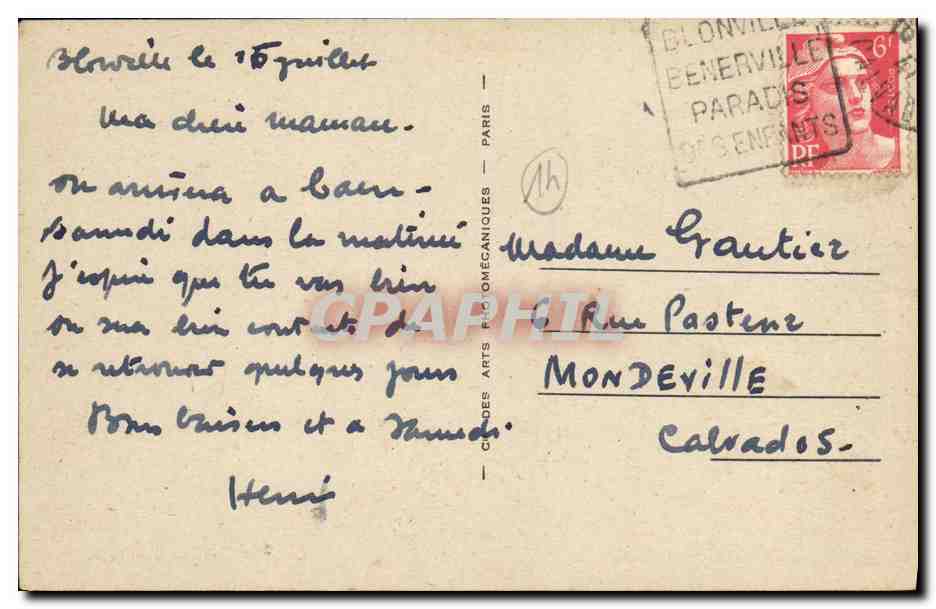 Blonville le 16 juillet
Ma chère maman.
on arrivera a Caen -
Samedi dans la matinée
J'espère que tu vas bien
on sera bien contents de
se retrouver quelques jours
Bons baisers et a Samedi.
Henri
BLONVILLE
BENERVILLE
PARADIS
DES ENFANTS
6F
RF
14
Madame Gautier
6 Rue Pasteur
MONDEVILLE
Calvados-
DES ARTS PHOTOMÉCANIQUES — PARIS —
CPAPHIL